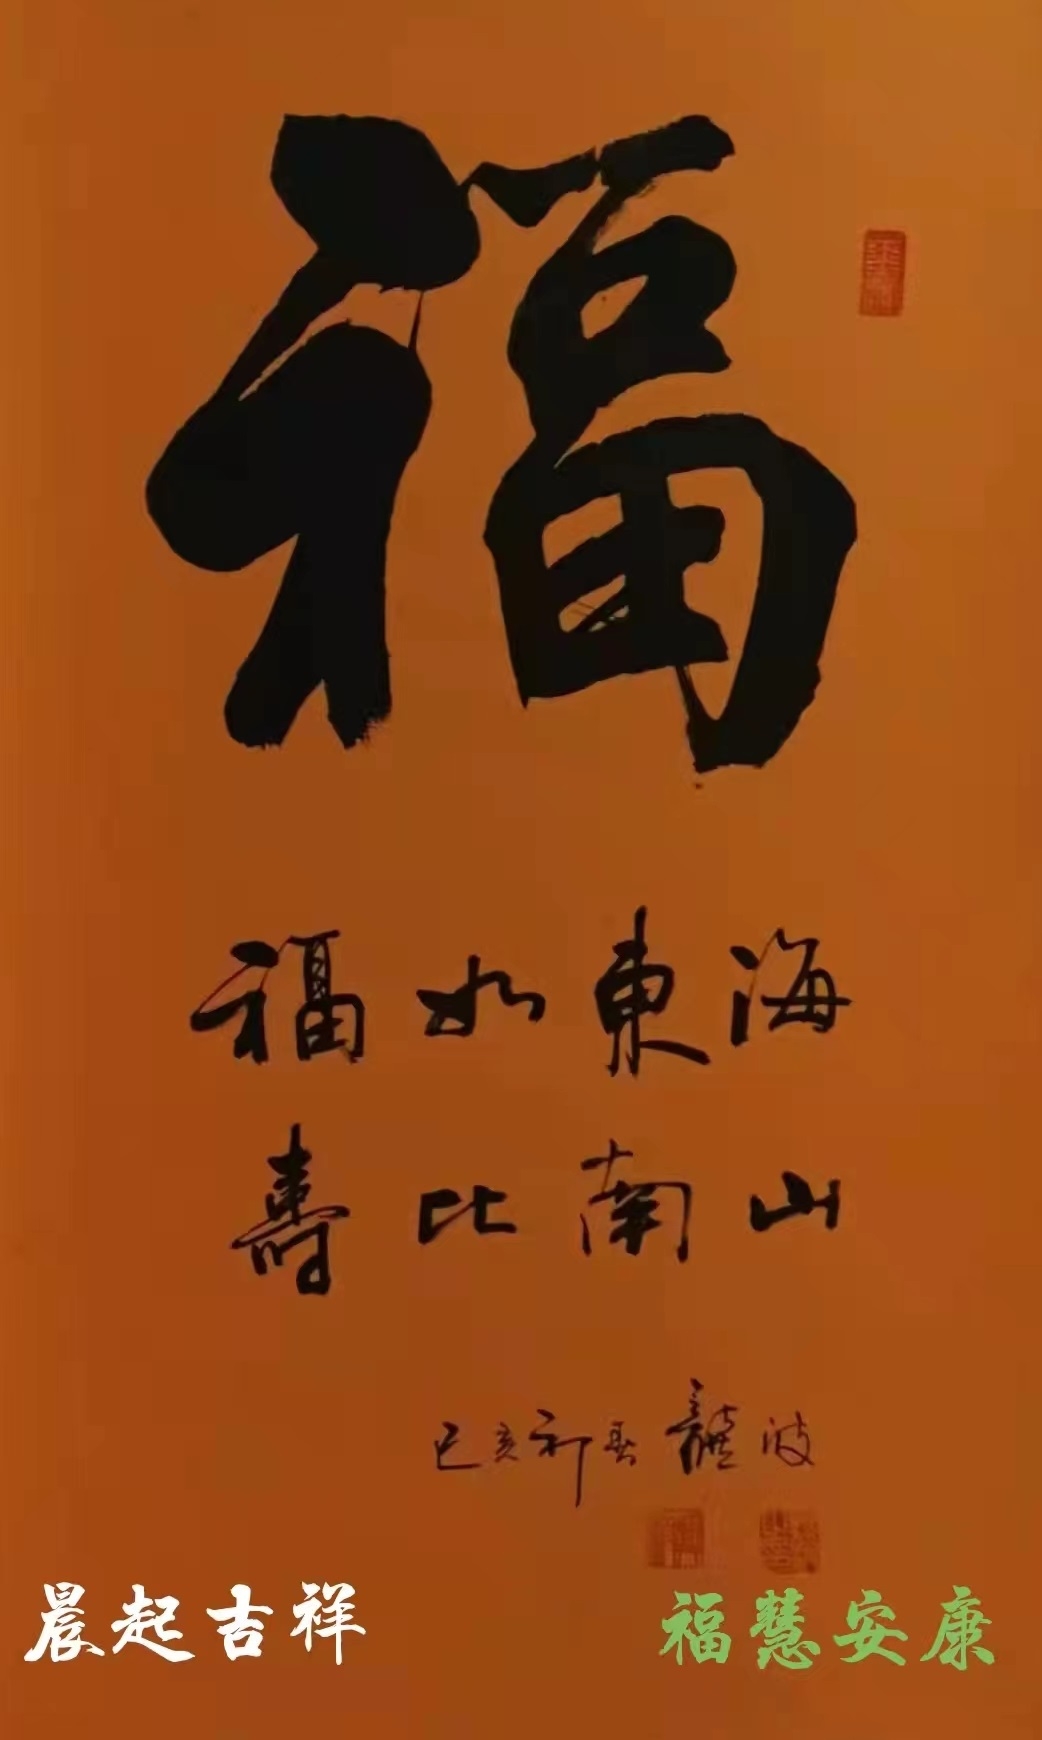 福
福如東海
壽比南山
己亥初春龍波
晨起吉祥
福慧安康